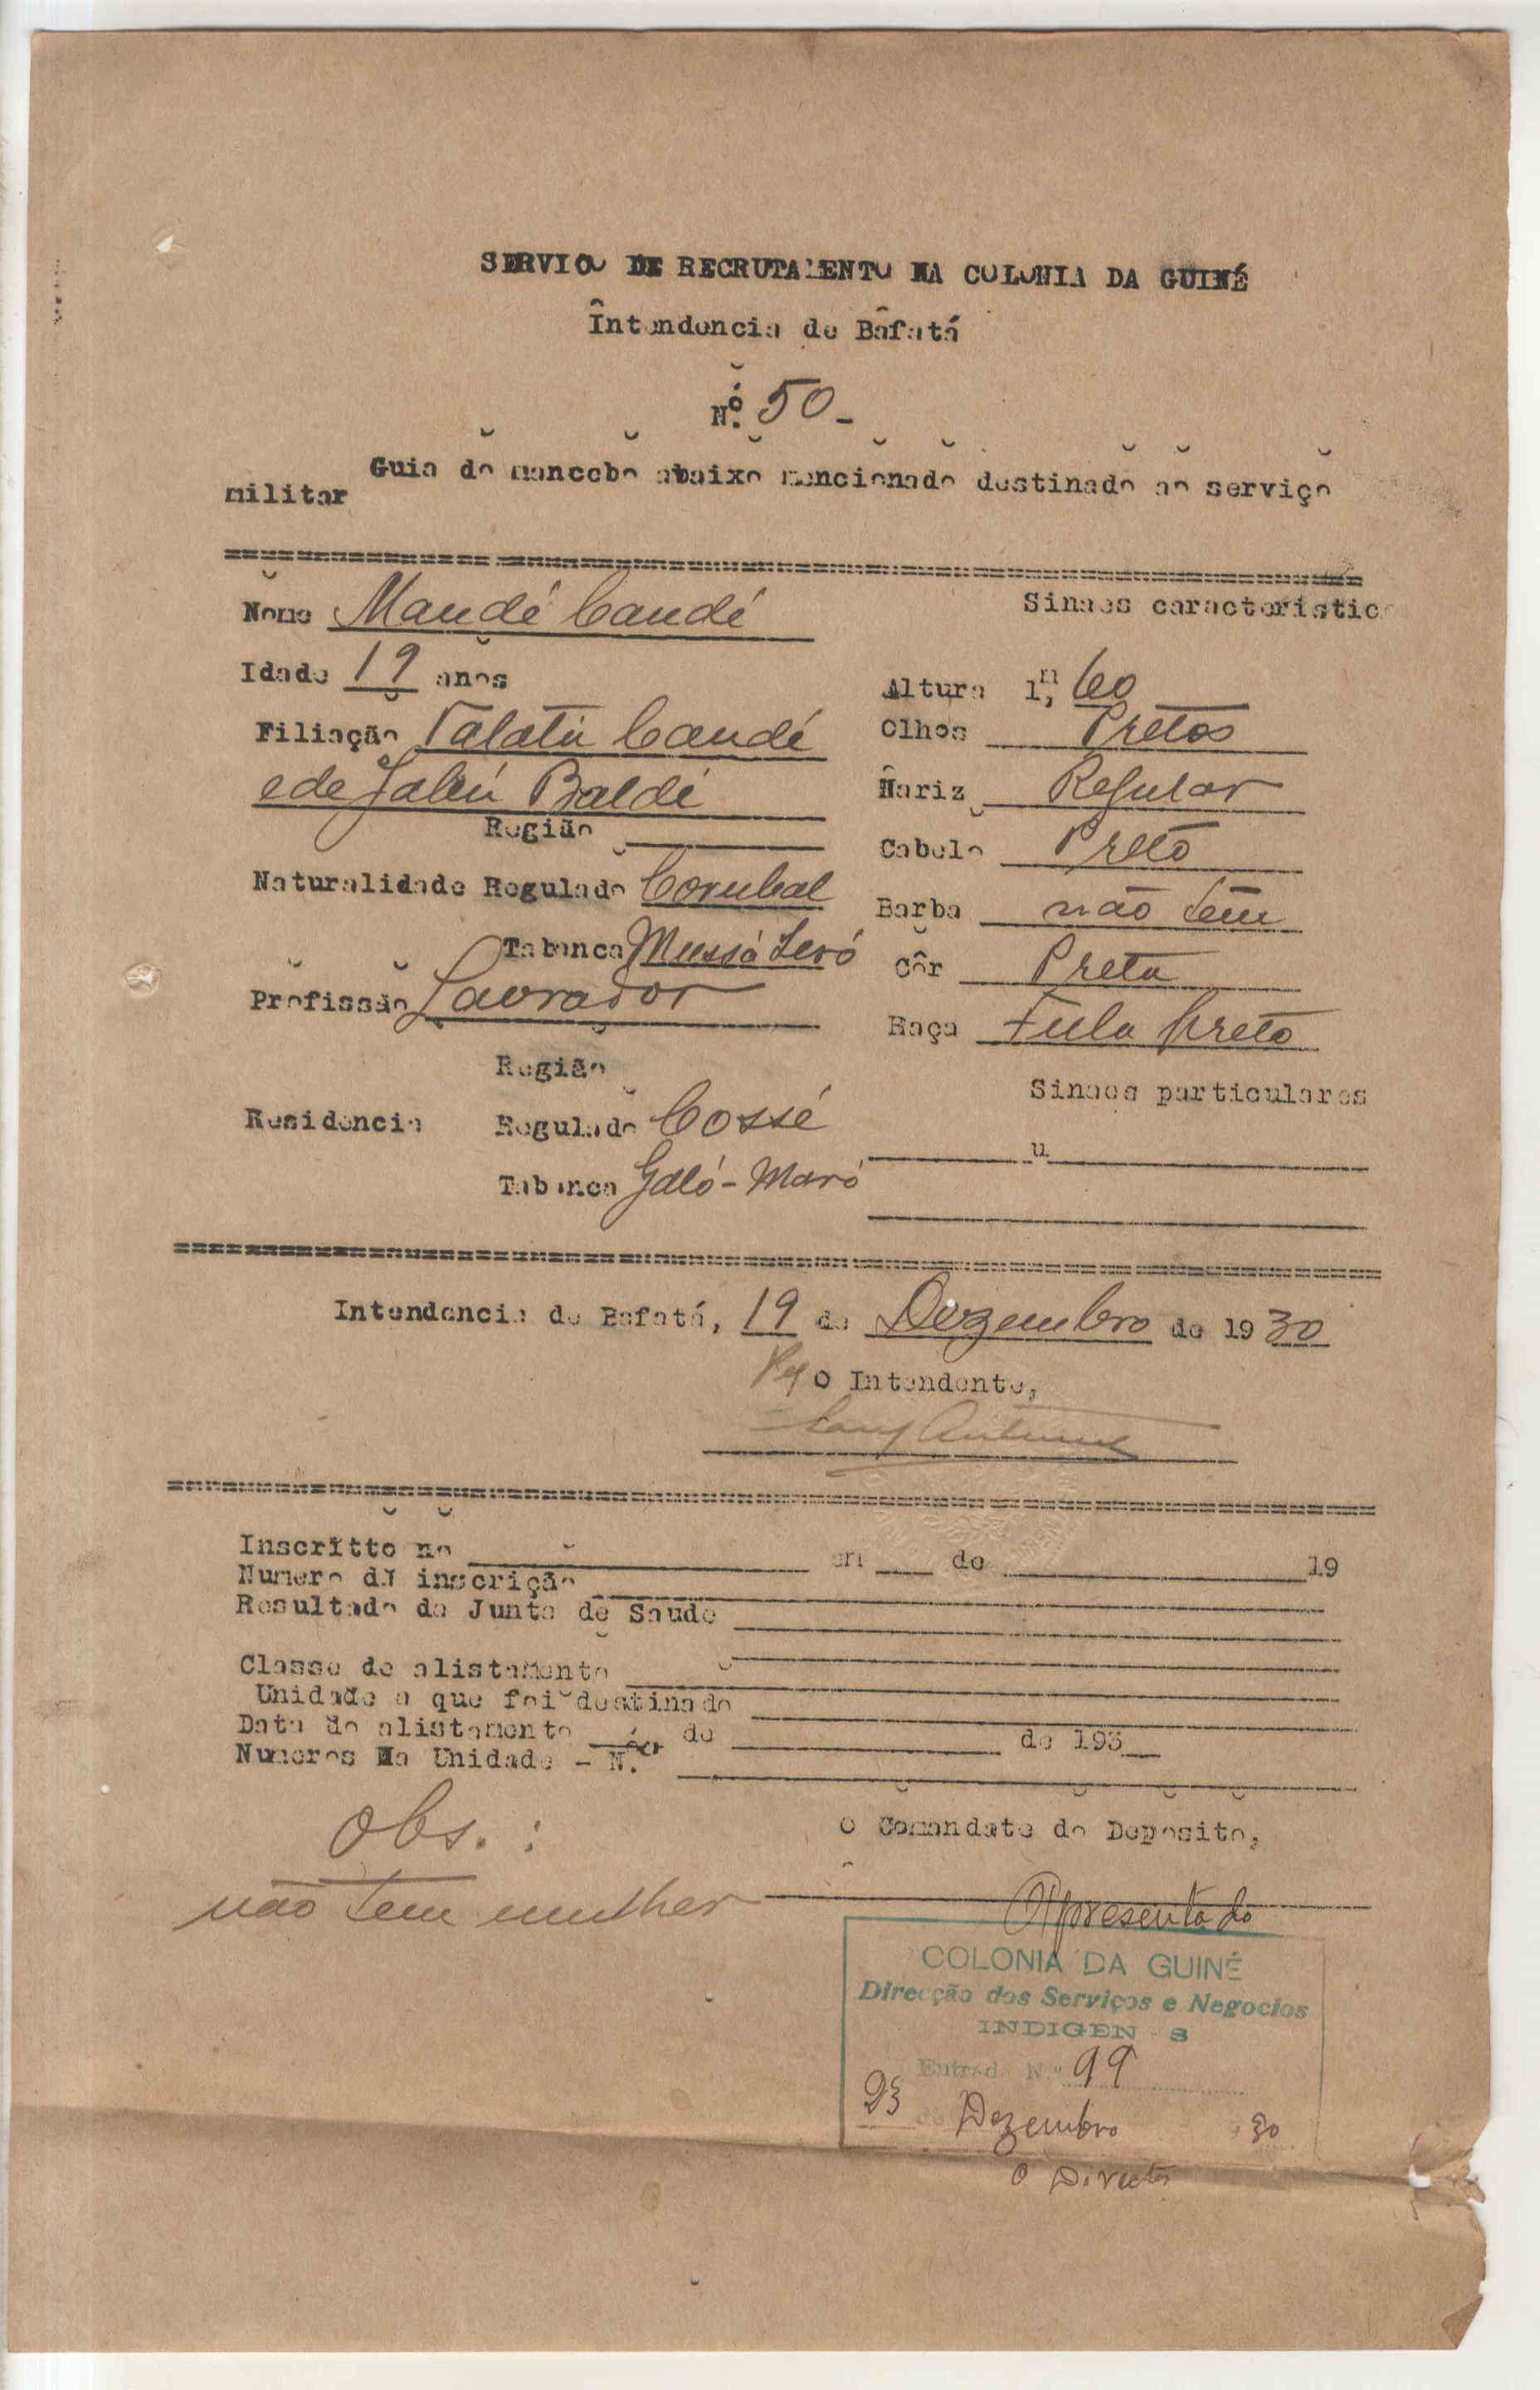 SERVICO DE RECRUTAMENTO NA COLONIA DA GUINÉ
Intendencia de Bafatá
Nº. 50-
Guia do mancebo abaixo mencionado destinado ao serviço
militar
Nome Mandé Candé
Sinaes caracteristic
Idade 19 anos
Altura 1,m 60
Filiação Talatú Candé
Olhos Pretos
e de Jabú Baldé
Nariz Regular
Região
Cabelo Preto
Naturalidade Regulado Corubal
Barba não tem
Tabanca Mussá Leró
Côr Preta
Profissão Lavrador
Raça Fula preto
Região
Sinaes particulares
Residencia Regulado Cossé
Tabanca Galó-Maró
Intendencia de Bafatá, 19 de Dezembro de 1930
O Intendente,
Inscritto no em de 19
Numero da inscrição
Resultado da Junta de Saude
Classe de alistamento
Unidade a que foi destinado
Data do alistamento de de 193
Numeros na Unidade - N.º
Obs. :
O Comandate do Deposito,
não tem mulher
Apresentado
COLONIA DA GUINÉ
Direcção dos Serviços e Negocios
INDIGEN S
Entrada N.º 99
23 de Dezembro 30
O Director